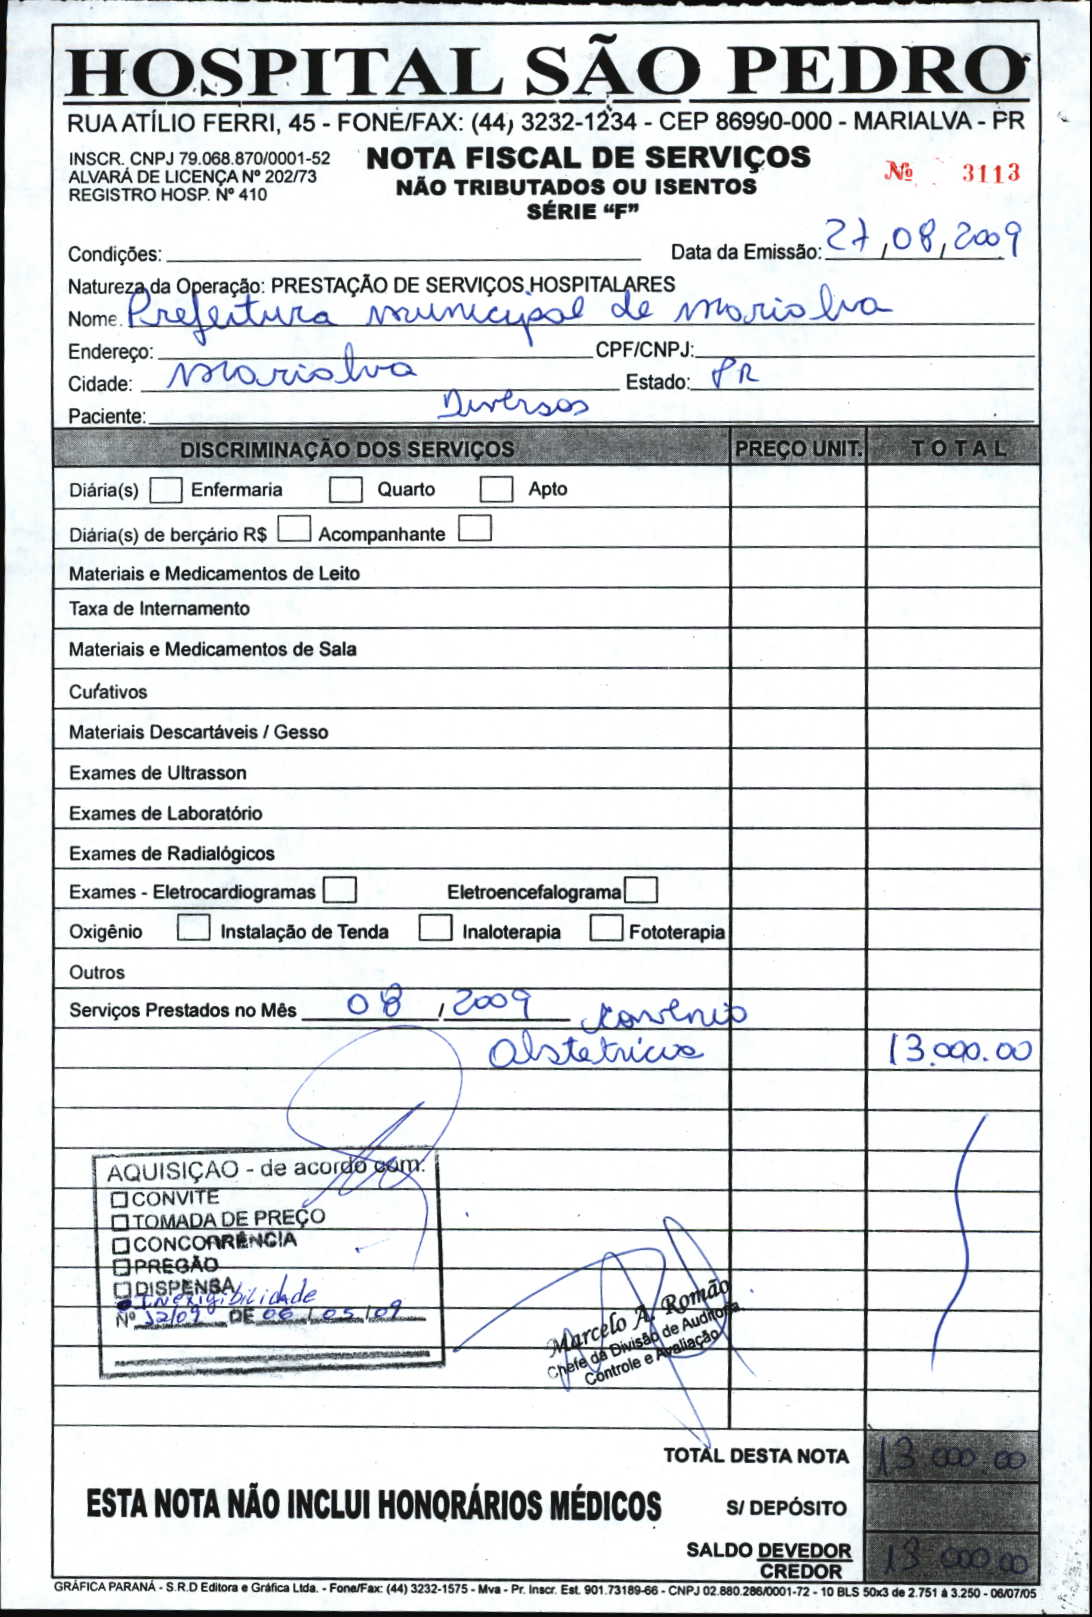 HOSPITAL SÃO PEDRO
RUA ATÍLIO FERRI, 45 - FONE/FAX: (44) 3232-1234 - CEP 86990-000 - MARIALVA - PR
INSCR. CNPJ 79.068.870/0001-52
ALVARÁ DE LICENÇA Nº 202/73
REGISTRO HOSP. Nº 410
NOTA FISCAL DE SERVIÇOS
NÃO TRIBUTADOS OU ISENTOS
SÉRIE “F”
Nº 3113
Condições: Data da Emissão: 27/08/2009
Natureza da Operação: PRESTAÇÃO DE SERVIÇOS HOSPITALARES
Nome. Prefeitura municipal de marialva
Endereço: CPF/CNPJ:
Cidade: Marialva Estado: PR
Paciente: Diversos
DISCRIMINAÇÃO DOS SERVIÇOS PREÇO UNIT. TOTAL
Diária(s) Enfermaria Quarto Apto
Diária(s) de berçário R$ Acompanhante
Materiais e Medicamentos de Leito
Taxa de Internamento
Materiais e Medicamentos de Sala
Curativos
Materiais Descartáveis / Gesso
Exames de Ultrasson
Exames de Laboratório
Exames de Radialógicos
Exames - Eletrocardiogramas Eletroencefalograma
Oxigênio Instalação de Tenda Inaloterapia Fototerapia
Outros
Serviços Prestados no Mês 08 / 2009 Convênio
Obstetrícia 13.000.00
AQUISIÇÃO - de acordo com:
CONVITE
TOMADA DE PREÇO
CONCORRÊNCIA
PREGÃO
DISPENSA
Inexigibilidade
Nº 12/09 DE 06/05/09
Marcelo A. Romão
Chefe da Divisão de Auditoria
Controle e Avaliação
TOTAL DESTA NOTA 13 000.00
ESTA NOTA NÃO INCLUI HONORÁRIOS MÉDICOS
S/ DEPÓSITO
SALDO DEVEDOR
CREDOR 13 000.00
GRÁFICA PARANÁ - S.R.D Editora e Gráfica Ltda. - Fone/Fax: (44) 3232-1575 - Mva - Pr. Inscr. Est. 901.73189-66 - CNPJ 02.880.286/0001-72 - 10 BLS 50x3 de 2.751 à 3.250 - 06/07/05